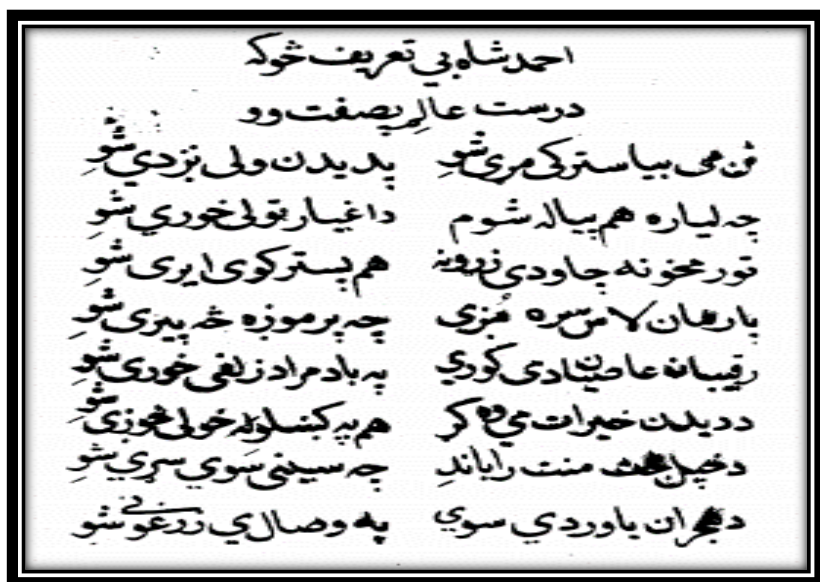 احمد شاه يې تعريف څوکه
درست عالم پصفت وو
نن می بیا سترکی مړی شو پدیدن ولی نزدي شو
چه لیاره هم پیاله شوم د اغیار تولی خوري شو
تور مخونه چاودی زړونه هم پستر کوی ایری شو
یارهان لاس سره مږی چه پر موزه څه پیزی شو
رقیبان عاصیان دی کوري په باد مراد زلفی خوری شو
د دیدن خیرات می وکر هم په کښلو خولی شو
د خپل بخت منت راباند چه سینی سوي سړي شو
د هجران باوردي سوي په وصال ي زرغونې شو